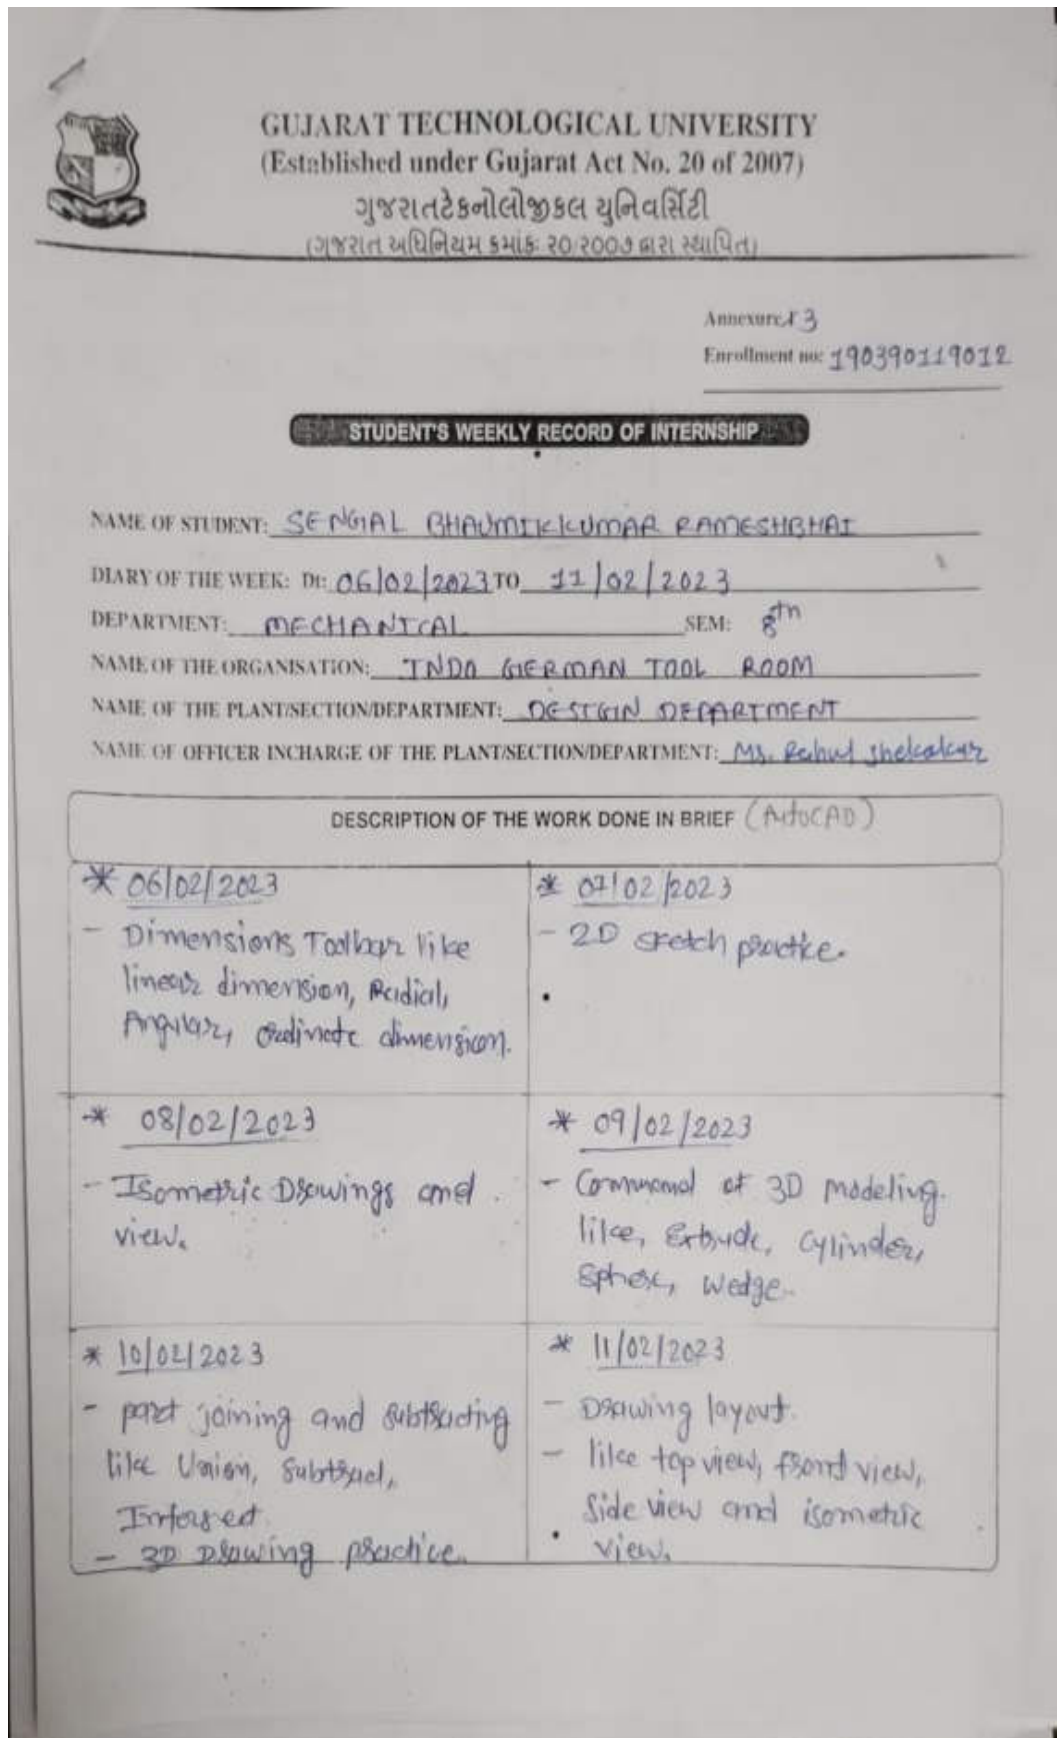 GUJARAT TECHNOLOGICAL UNIVERSITY
(Established under Gujarat Act No. 20 of 2007)
ગુજરાતટેકનોલોજીકલ યુનિવર્સિટી
(ગુજરાત અધિનિયમ ક્રમાંક: ૨૦/૨૦૦૭ દ્વારા સ્થાપિત)
Annexure 3
Enrollment no: 190390119012
STUDENT'S WEEKLY RECORD OF INTERNSHIP
NAME OF STUDENT: SENGAL BHAUMIKKUMAR RAMESHBHAI
DIARY OF THE WEEK: Dt: 06/02/2023 TO 11/02/2023
DEPARTMENT: MECHANICAL SEM: 8th
NAME OF THE ORGANISATION: INDO GERMAN TOOL ROOM
NAME OF THE PLANT/SECTION/DEPARTMENT: DESIGN DEPARTMENT
NAME OF OFFICER INCHARGE OF THE PLANT/SECTION/DEPARTMENT: Ms. Rahul
DESCRIPTION OF THE WORK DONE IN BRIEF (AutoCAD)
* 06/02/2023
- Dimensions Toolbar like
linear dimension, Radial,
Angular, ordinate dimension.
* 07/02/2023
- 2D sketch practice.
* 08/02/2023
- Isometric Drawings and
view.
* 09/02/2023
- Command of 3D modeling.
like, Extrude, Cylinder,
Sphere, wedge.
* 10/02/2023
- part joining and subtracting
like Union, Subtract,
- 3D Drawing practice.
* 11/02/2023
- Drawing layout.
- like top view, front view,
Side view and isometric
view.